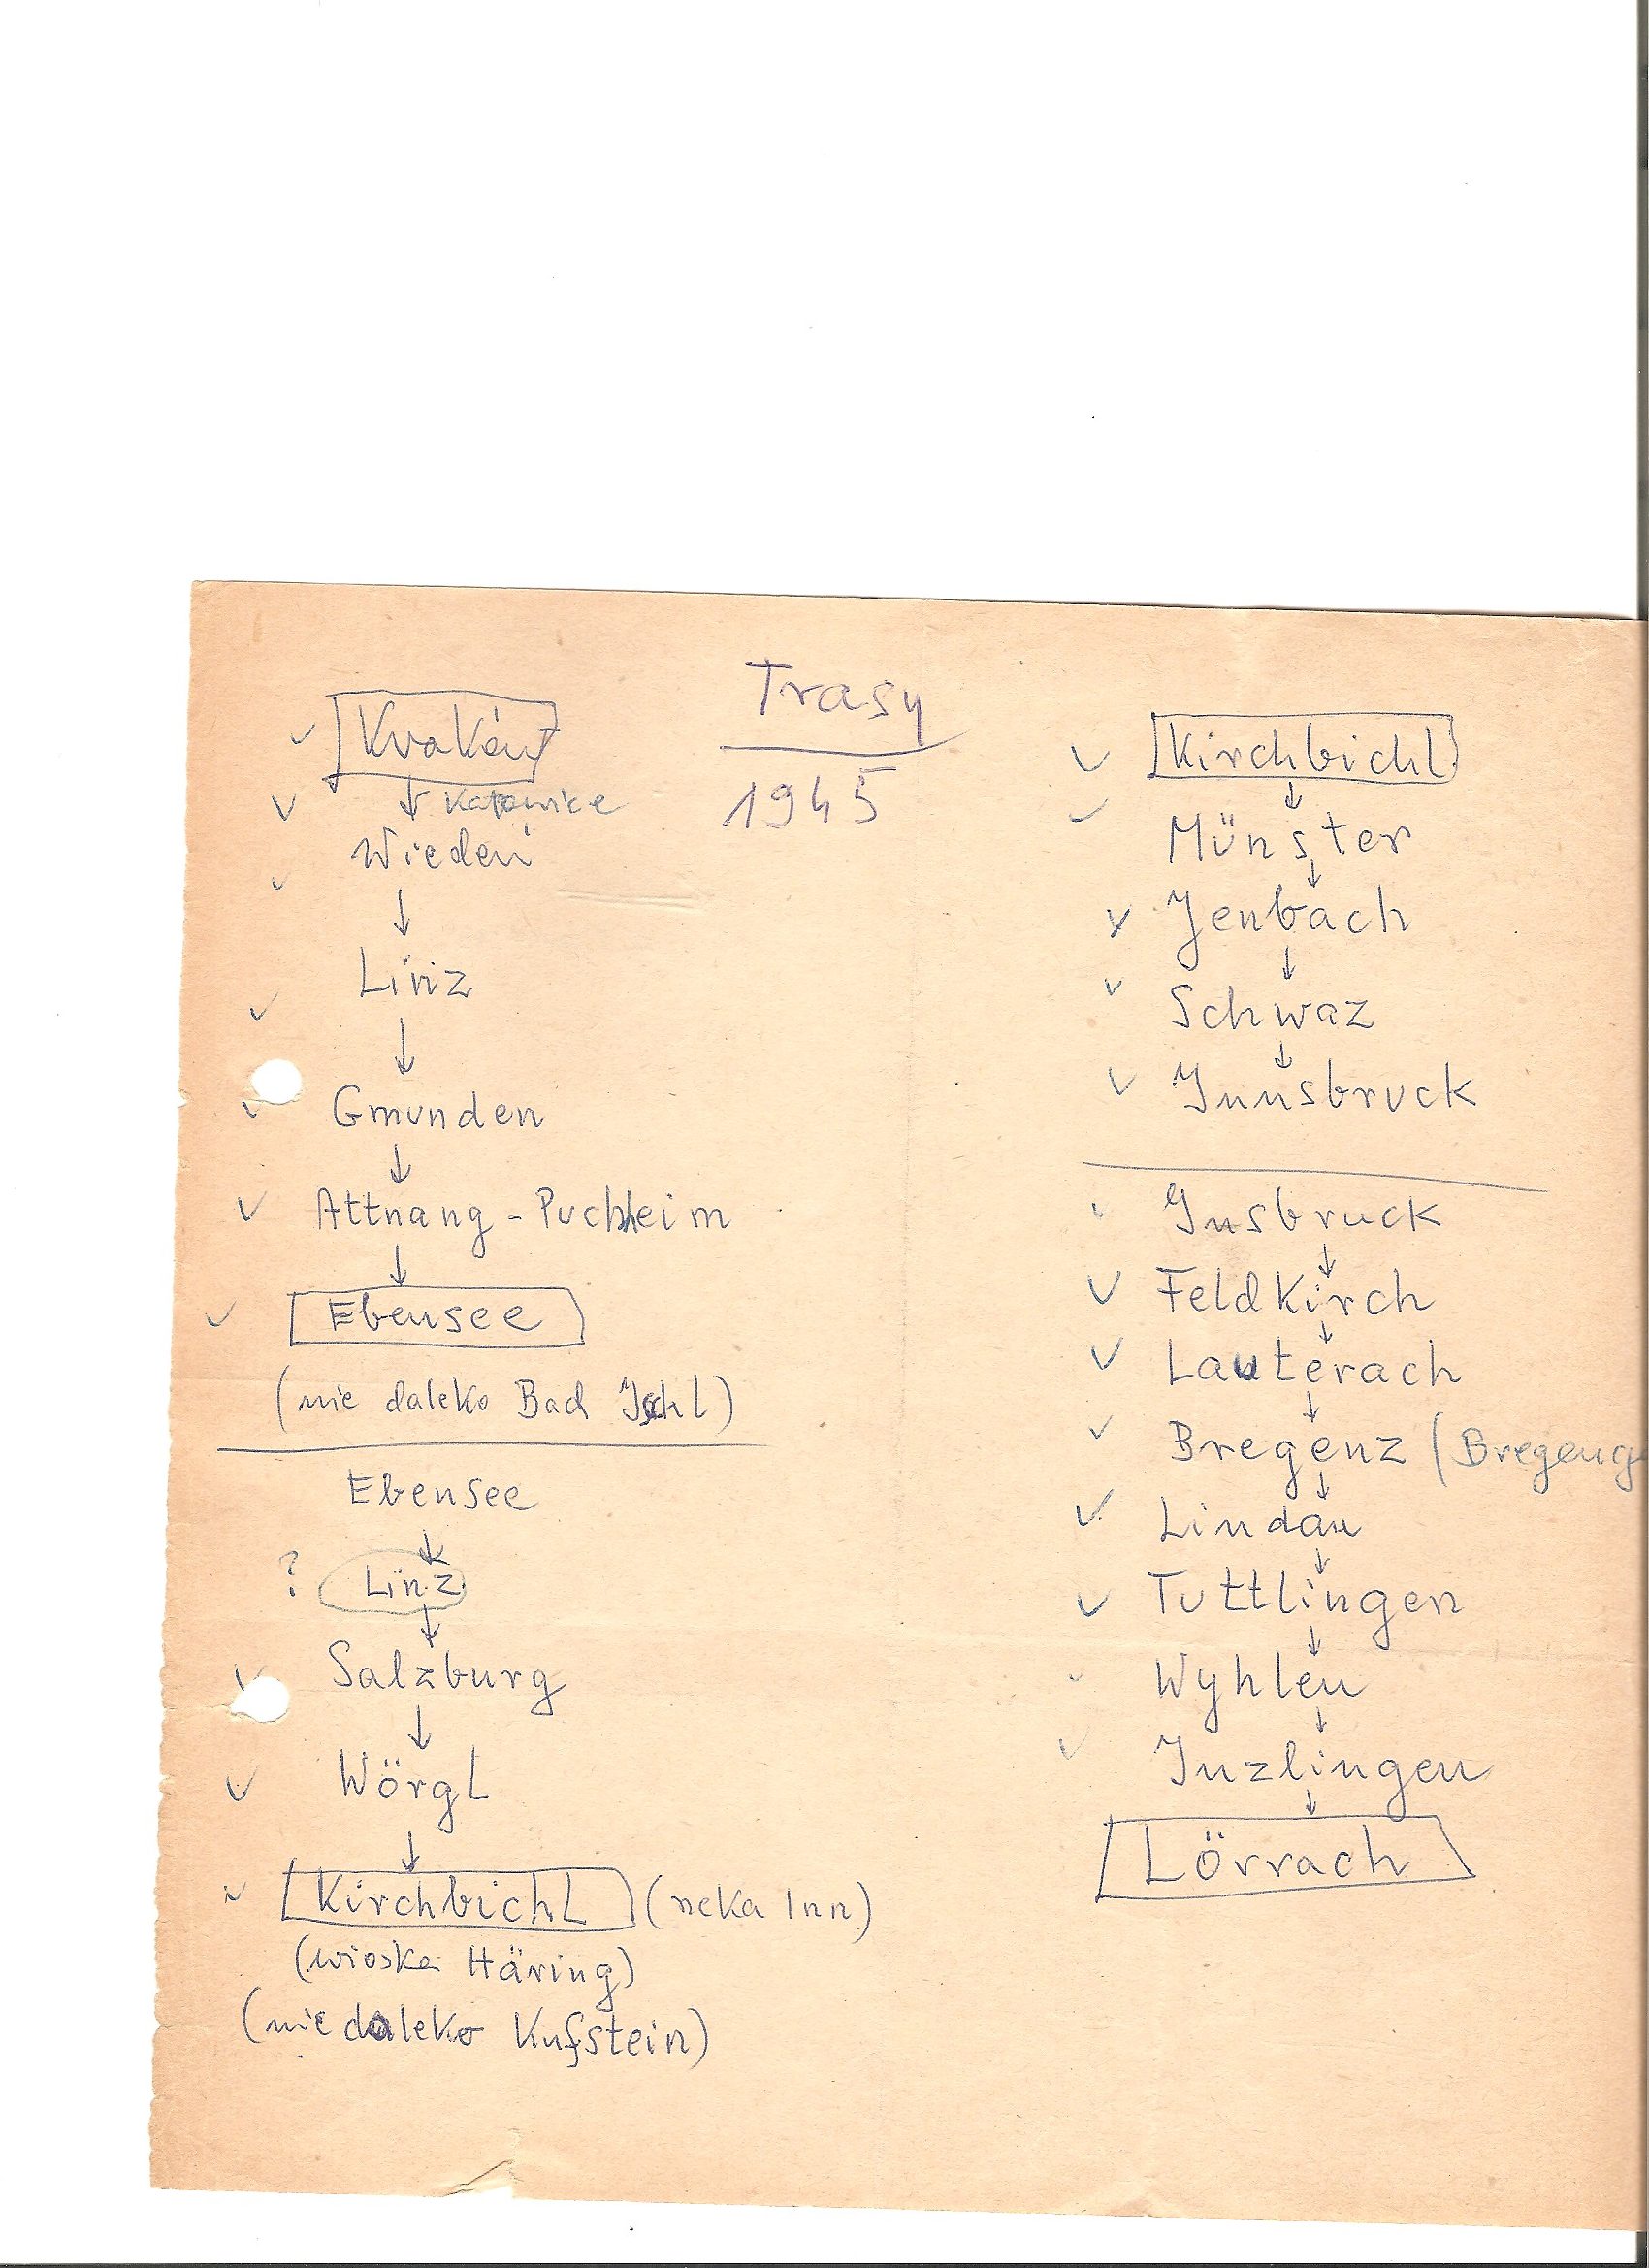 Trasy
1945
Kraków
↓ Katowice
Wiedeń
↓
Linz
↓
Gmunden
↓
Attnang-Puchheim
↓
Ebensee
(nie daleko Bad Ischl)
Ebensee
↓
? Linz
↓
Salzburg
↓
Wörgl
↓
Kirchbichl (reka Inn)
(wioska Häring)
(nie daleko Kufstein)
Kirchbichl
↓
Münster
↓
Jenbach
↓
Schwaz
↓
Innsbruck
Insbruck
↓
Feldkirch
↓
Lauterach
↓
Bregenz (Bregeng
↓
Lindau
↓
Tuttlingen
↓
Wyhlen
↓
Inzlingen
↓
Lörrach